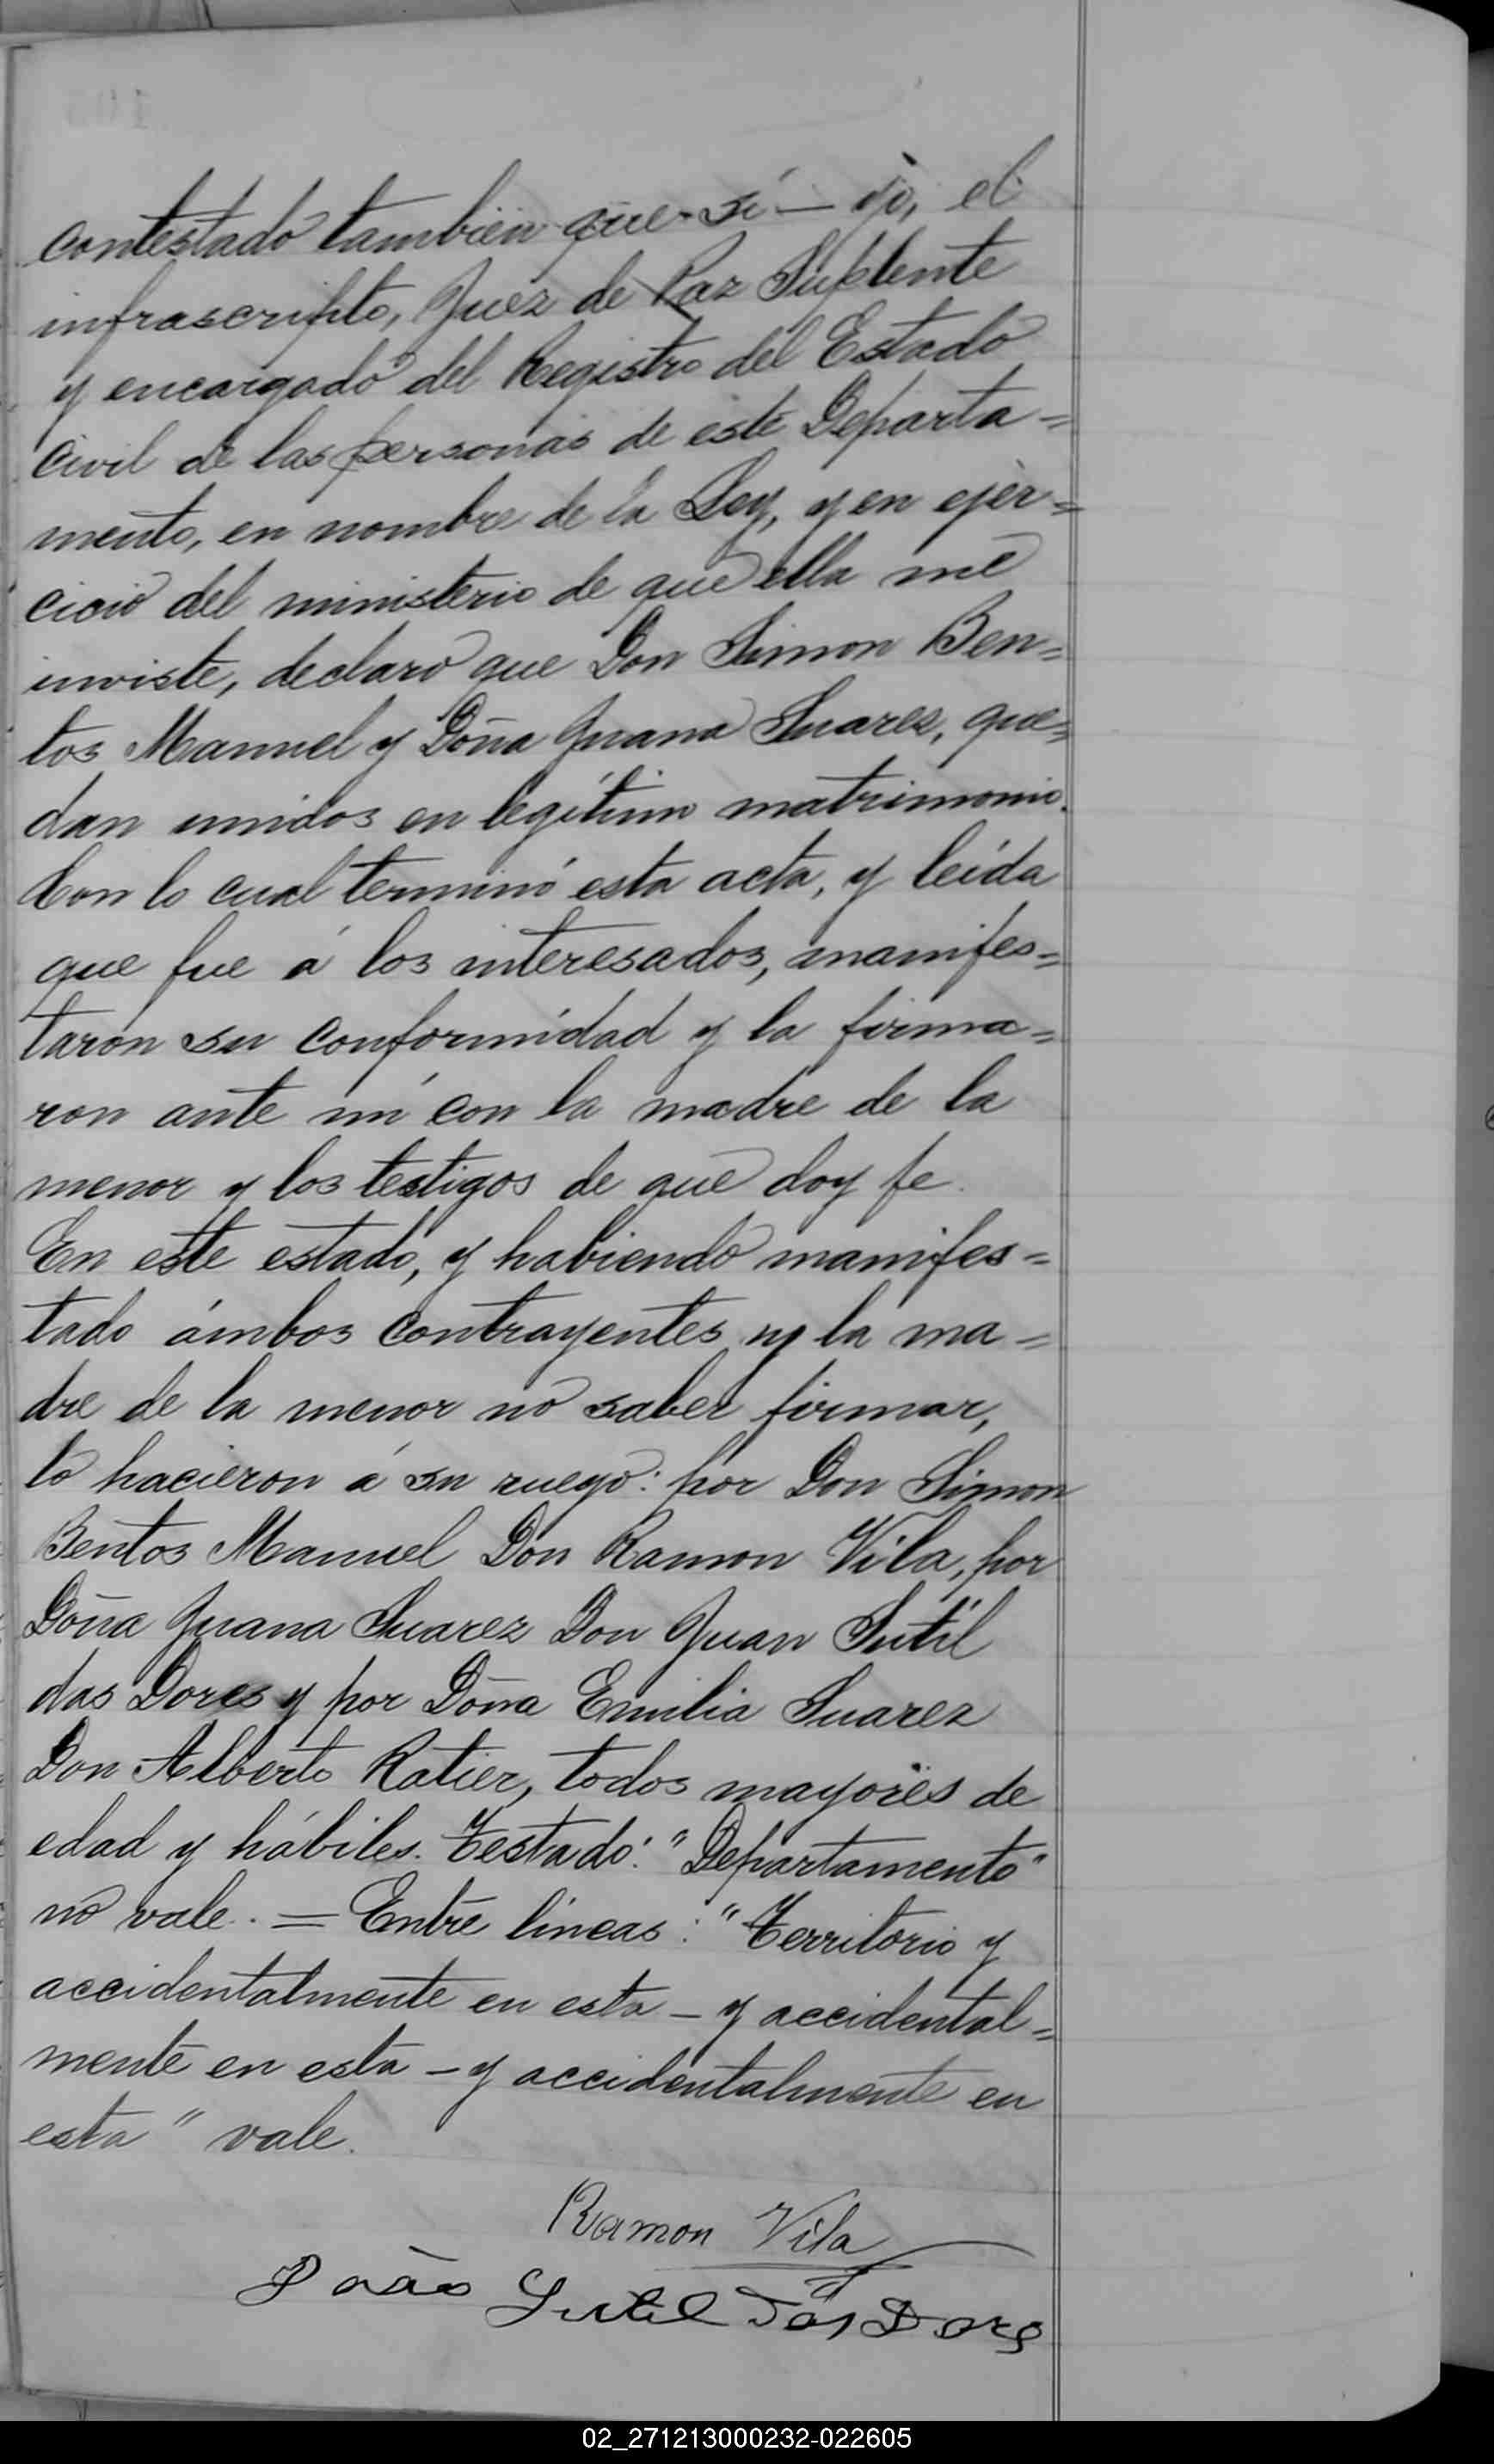 contestado tambien que sí — yo, el
infrascripto, Juez de Paz Suplente
y encargado del Registro del Estado
Civil de las personas de este Departa=
mento, en nombre de la Ley, y en ejer=
cicio del ministerio de que ella me
inviste, declaro que Don Simon Ben=
tos Manuel y Doña Juana Suarez, que=
dan unidos en legítimo matrimonio.
Con lo cual terminó esta acta, y leída
que fue á los interesados, manifes=
taron su conformidad y la firma=
ron ante mí con la madre de la
menor y los testigos de que doy fe.
En este estado, y habiendo manifes=
tado ámbos contrayentes y la ma=
dre de la menor no saber firmar,
lo hacieron á su ruego: por Don Simon
Bentos Manuel Don Ramon Vila, por
Doña Juana Suarez Don Juan Sutil
das Dores y por Doña Emilia Suarez
Don Alberto Ratier, todos mayores de
edad y hábiles. Testado: "Departamento"
no vale. = Entre líneas: "Territorio y
accidentalmente en esta — y accidental=
mente en esta — y accidentalmente en
esta" vale.
Ramon Vila
João Sutil das Dores
02_271213000232-022605